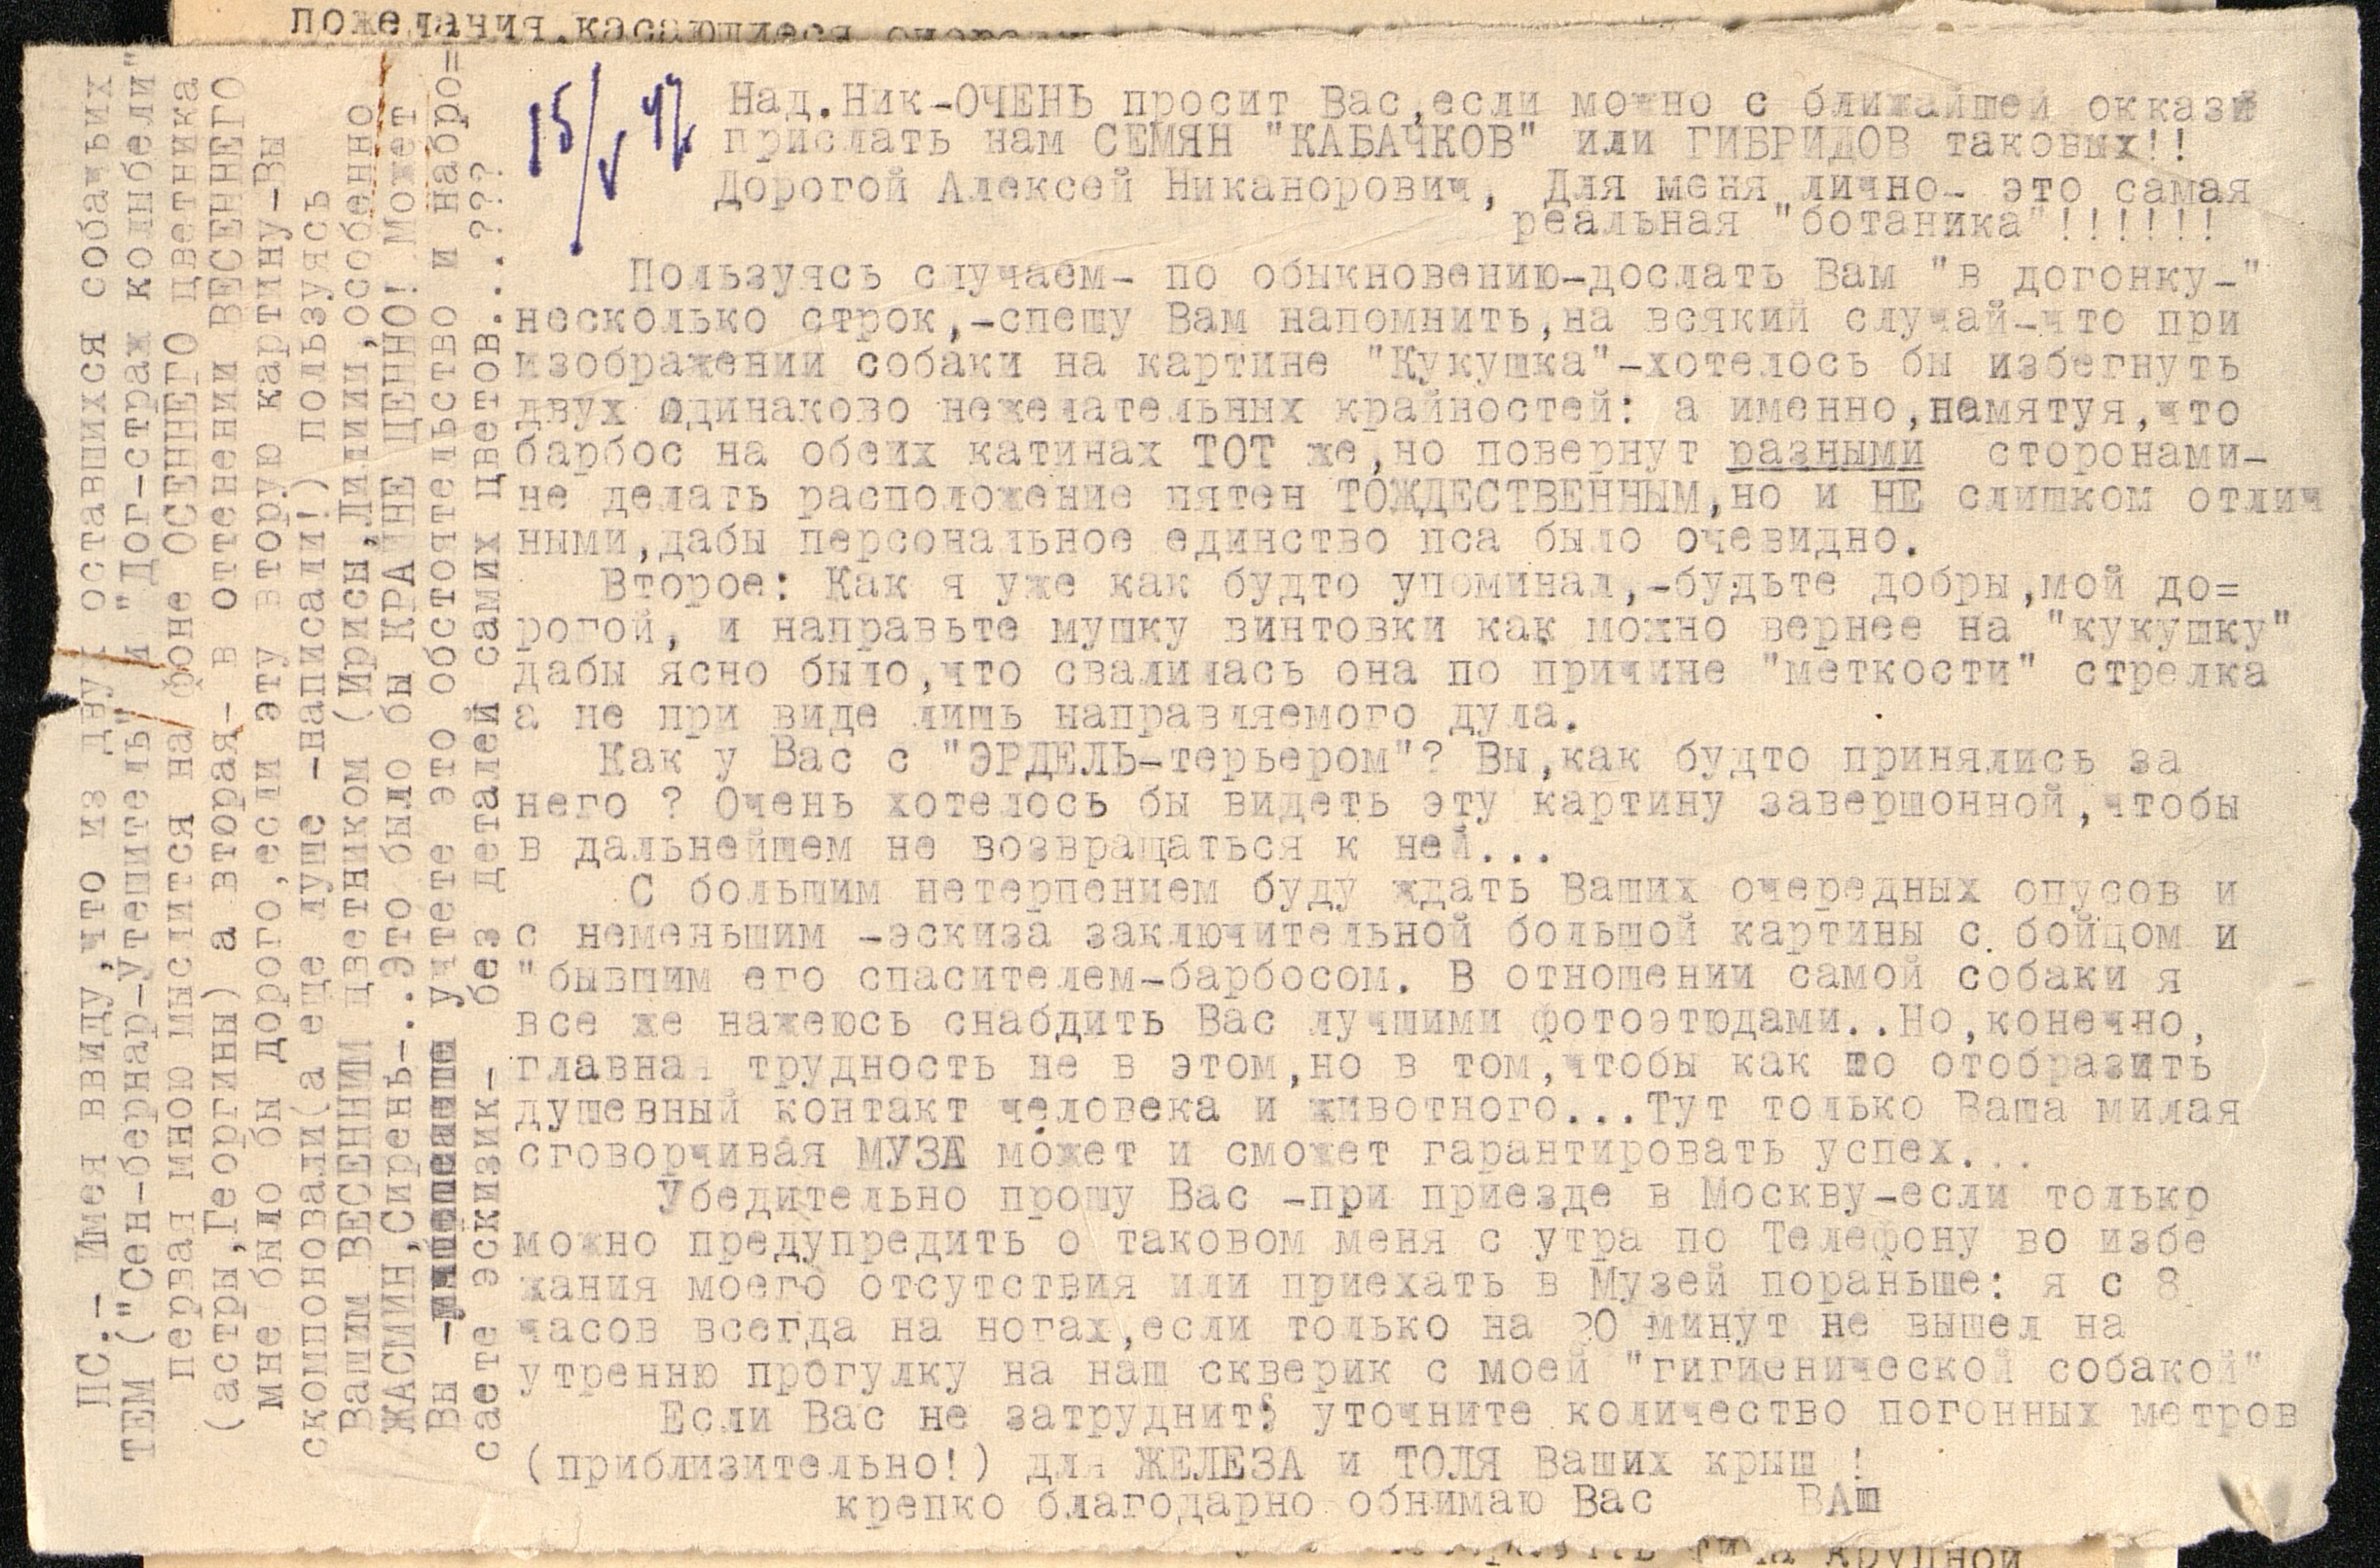 пожелания,касающиеся
15/V 47
Над.Ник-ОЧЕНЬ просит Вас,если можно с ближайшей оккази
прислать нам СЕМЯН "КАБАЧКОВ" или ГИБРИДОВ таковых!!
Дорогой Алексей Никанорович, Для меня лично- это самая
реальная "ботаника"!!!!!!
Пользуясь случаем- по обыкновению-дослать Вам "в догонку-"
несколько строк,-спешу Вам напомнить,на всякий случай-что при
изображении собаки на картине "Кукушка"-хотелось бы избегнуть
двух одинаково нежелательных крайностей: а именно,памятуя,что
барбос на обеих катинах ТОТ же,но повернут разными сторонами-
не делать расположение пятен ТОЖДЕСТВЕННЫМ,но и НЕ слишком отлич
ными,дабы персональное единство пса было очевидно.
Второе: Как я уже как будто упоминал,-будьте добры,мой до=
рогой, и направьте мушку винтовки как можно вернее на "кукушку"
дабы ясно было,что свалилась она по причине "меткости" стрелка
а не при виде лишь направляемого дула.
Как у Вас с "ЭРДЕЛЬ-терьером"? Вы,как будто принялись за
него ? Очень хотелось бы видеть эту картину завершонной,чтобы
в дальнейшем не возвращаться к ней...
С большим нетерпением буду ждать Ваших очередных опусов и
с неменьшим -эскиза заключительной большой картины с бойцом и
"бывшим его спасителем-барбосом. В отношении самой собаки я
все же нажеюсь снабдить Вас лучшими фотоэтюдами..Но,конечно,
главная трудность не в этом,но в том,чтобы как то отобразить
душевный контакт человека и животного...Тут только Ваша милая
сговорчивая МУЗА может и сможет гарантировать успех...
Убедительно прошу Вас -при приезде в Москву-если только
можно предупредить о таковом меня с утра по Телефону во избе
жания моего отсутствия или приехать в Музей пораньше: я с 8
часов всегда на ногах,если только на 20 минут не вышел на
утренню прогулку на наш скверик с моей "гигиенической собакой"
Если Вас не затруднит; уточните количество погонных метров
(приблизительно!) для ЖЕЛЕЗА и ТОЛЯ Ваших крыш !
крепко благодарно обнимаю Вас ВАш
ПС.- Имея ввиду,что из двух оставшихся собачьих
ТЕМ ("Сен-бернар-Утешитель" и "Дог-страж колыбели"
первая мною мыслится на фоне ОСЕННЕГО цветника
(астры,Георгины) а вторая- в оттенении ВЕСЕННЕГО
мне было бы дорого,если эту вторую картину-Вы
скомпоновали(а еще луше -написали!) пользуясь
Вашим ВЕСЕННИМ цветником (Ирисы,Лилии,особенно
ЖАСМИН,Сирень-..Это было бы КРАЙНЕ ЦЕННО! Может
Вы учтете это обстоятельство и набро=
саете эскизик- без деталей самих цветов...???
крупной